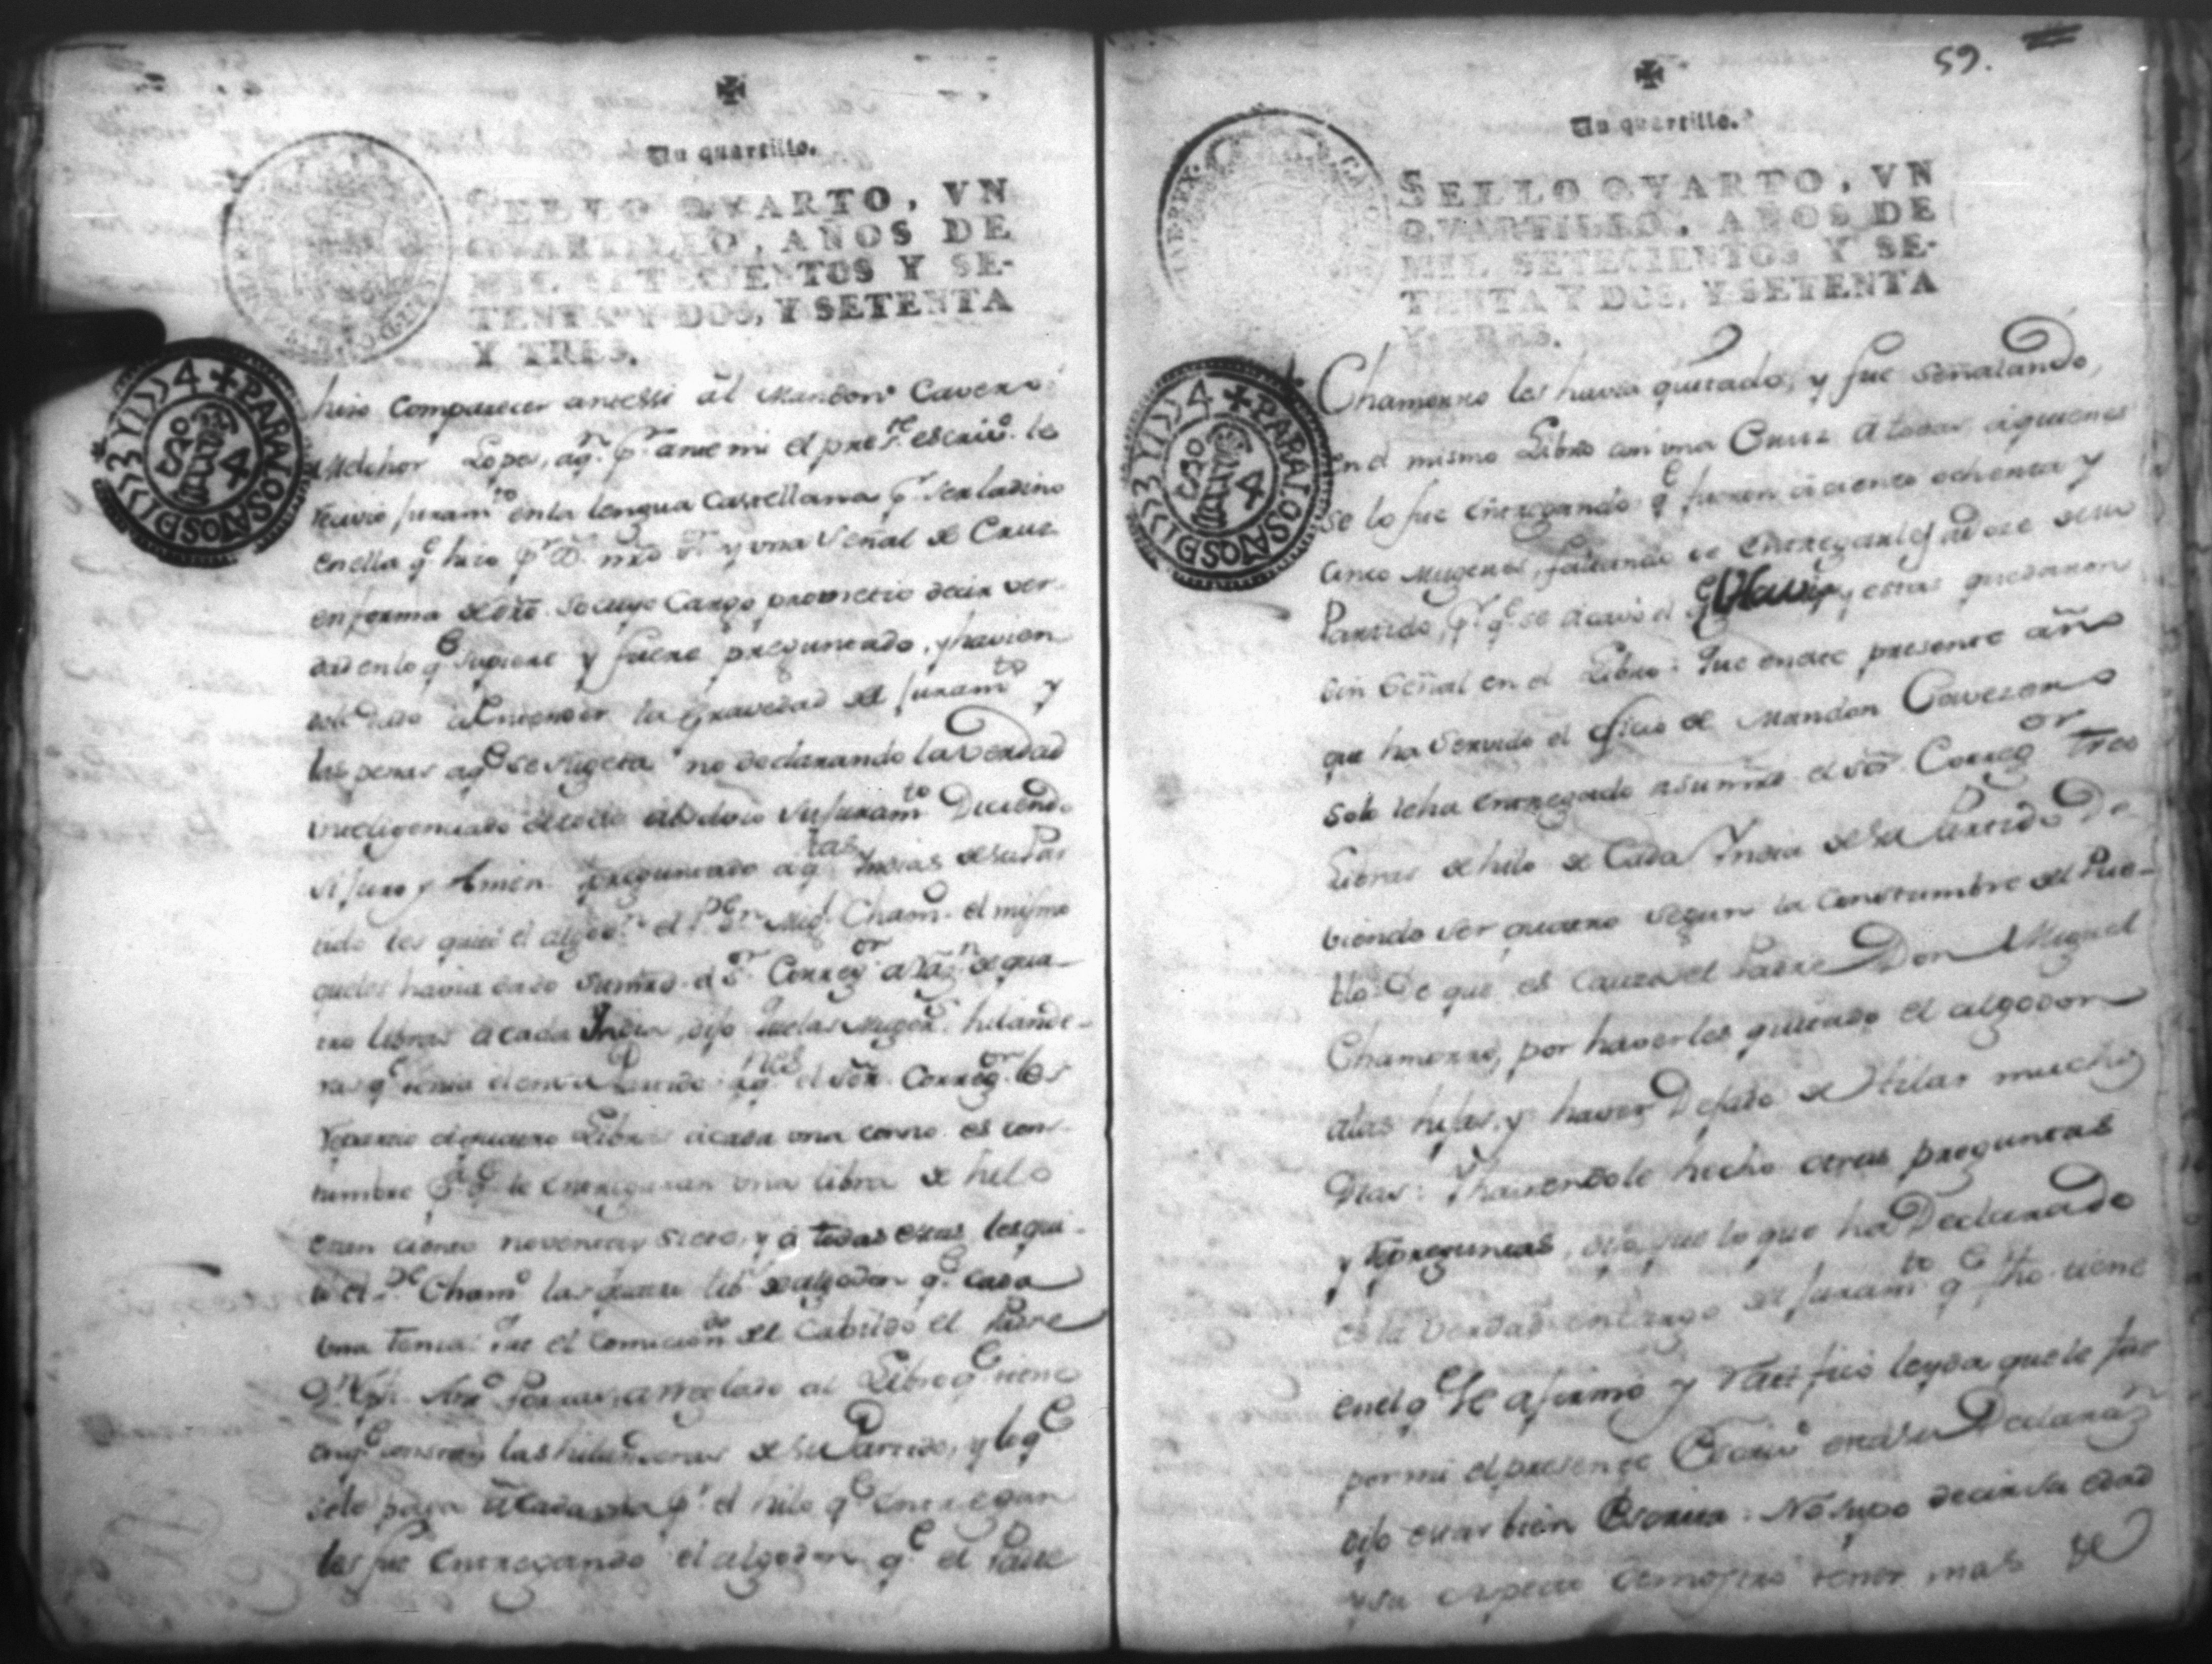 Un quartillo.
SELLO QVARTO, VN
QVARTILLO, AÑOS DE
MIL SETECIENTOS Y SE-
TENTA Y DOS, Y SETENTA
Y TRES.
PARA LOS AÑOS D
hizo Comparecer antessi al Mandon Cavezo
Melchor Lopez, aqn. pr. ante mi el prete. escrivo. le
recivio juramto en la lengua Castellana pr. ser ladino
en ella qe. hizo pr. D. nro Sr. y una Señal de Cruz
en forma de dro. So cuyo Cargo prometio decir ver-
dad en lo qe supiere y fuere preguntado, y havien
dole dado a entender la gravedad del juramto y
las penas a qe se sugeta no declarando la Verdad
inteligenciado de todo absolvio su juramto Diciendo
si juro y Amen. preguntado a qtas Indias de su Par
tido les quitó el algodn. el Pe. Dn. Migl. Chamo. el mismo
que les havia dado Sumrd. el Sr. Corregor a razn. de qua-
tro libras a cada India, dijo que las Mugers. hilande-
ras qe tenia el en su Partido a qnes el Sor. Corregor. les
repartio de quatro Libras a cada una como es cos-
tumbre pa. qe. le entregaran una libra de hilo
eran ciento noventa y siete, y á todas estas les qui-
to el Pe Chamo las quatro lib. de algodon qe. cada
una tenia: que el Comiciondo del Cabildo el Padre
Dn. Anto Porras, arreglado al Libro qe tiene
en qe constan las hilanderas de su Partido, y lo qe
se le paga a cada una pr. el hilo qe entregan
les fue entregando el algodon qe el Padre
59.
Un quartillo.
SELLO QVARTO, VN
QVARTILLO, AÑOS DE
MIL SETECIENTOS Y SE-
TENTA Y DOS, Y SETENTA
Y TRES.
PARA LOS AÑOS D
Chamorro les havia quitado, y fue señalando,
en el mismo Libro con una Cruz a todas aquienes
se lo fue entregando qe fueron ciento ochenta y
cinco Mugeres, faltando de entregarles a doze de su
Partido, pr. qe se acavó el qe havia, y estas quedaron
sin Señal en el Libro: Que en este presente año
que ha Servido el oficio de Mandon Cavezero
solo le ha entregado a su mrd. el Sor. Corregor tres
Libras de hilo de Cada India de su Partido De-
biendo ser quatro segun la Constumbre del Pue-
blo De que es causa el Padre Don Miguel
Chamorro, por haverles quitado el algodon
alas hijas, y haver Dejado de Hilar muchos
Dias: Y haviendole hecho otras preguntas
y repreguntas, dijo que lo que ha Declarado
es la Verdad en cargo del juramto qe fho tiene
en el qe se afirmó y ratificó leyda que le fue
por mi el presente Escrivo esta su Declarazn
dijo estar bien Escrita: No supo decir su edad
y su aspecto demostro tener mas de